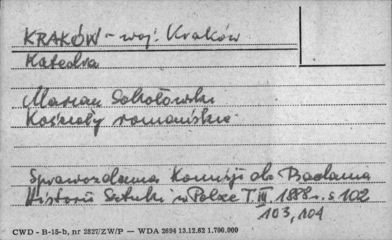 KRAKÓW - woj. Kraków
Katedra
Marian Sokołowski
Kościoły romańskie
Sprawozdania Komisji do Badania
Historii Sztuki w Polsce T. III 1888 r. s 102
103, 104
CWD - B-15-b, nr 2827/ZW/P — WDA 2694 13.12.62 1.700.000